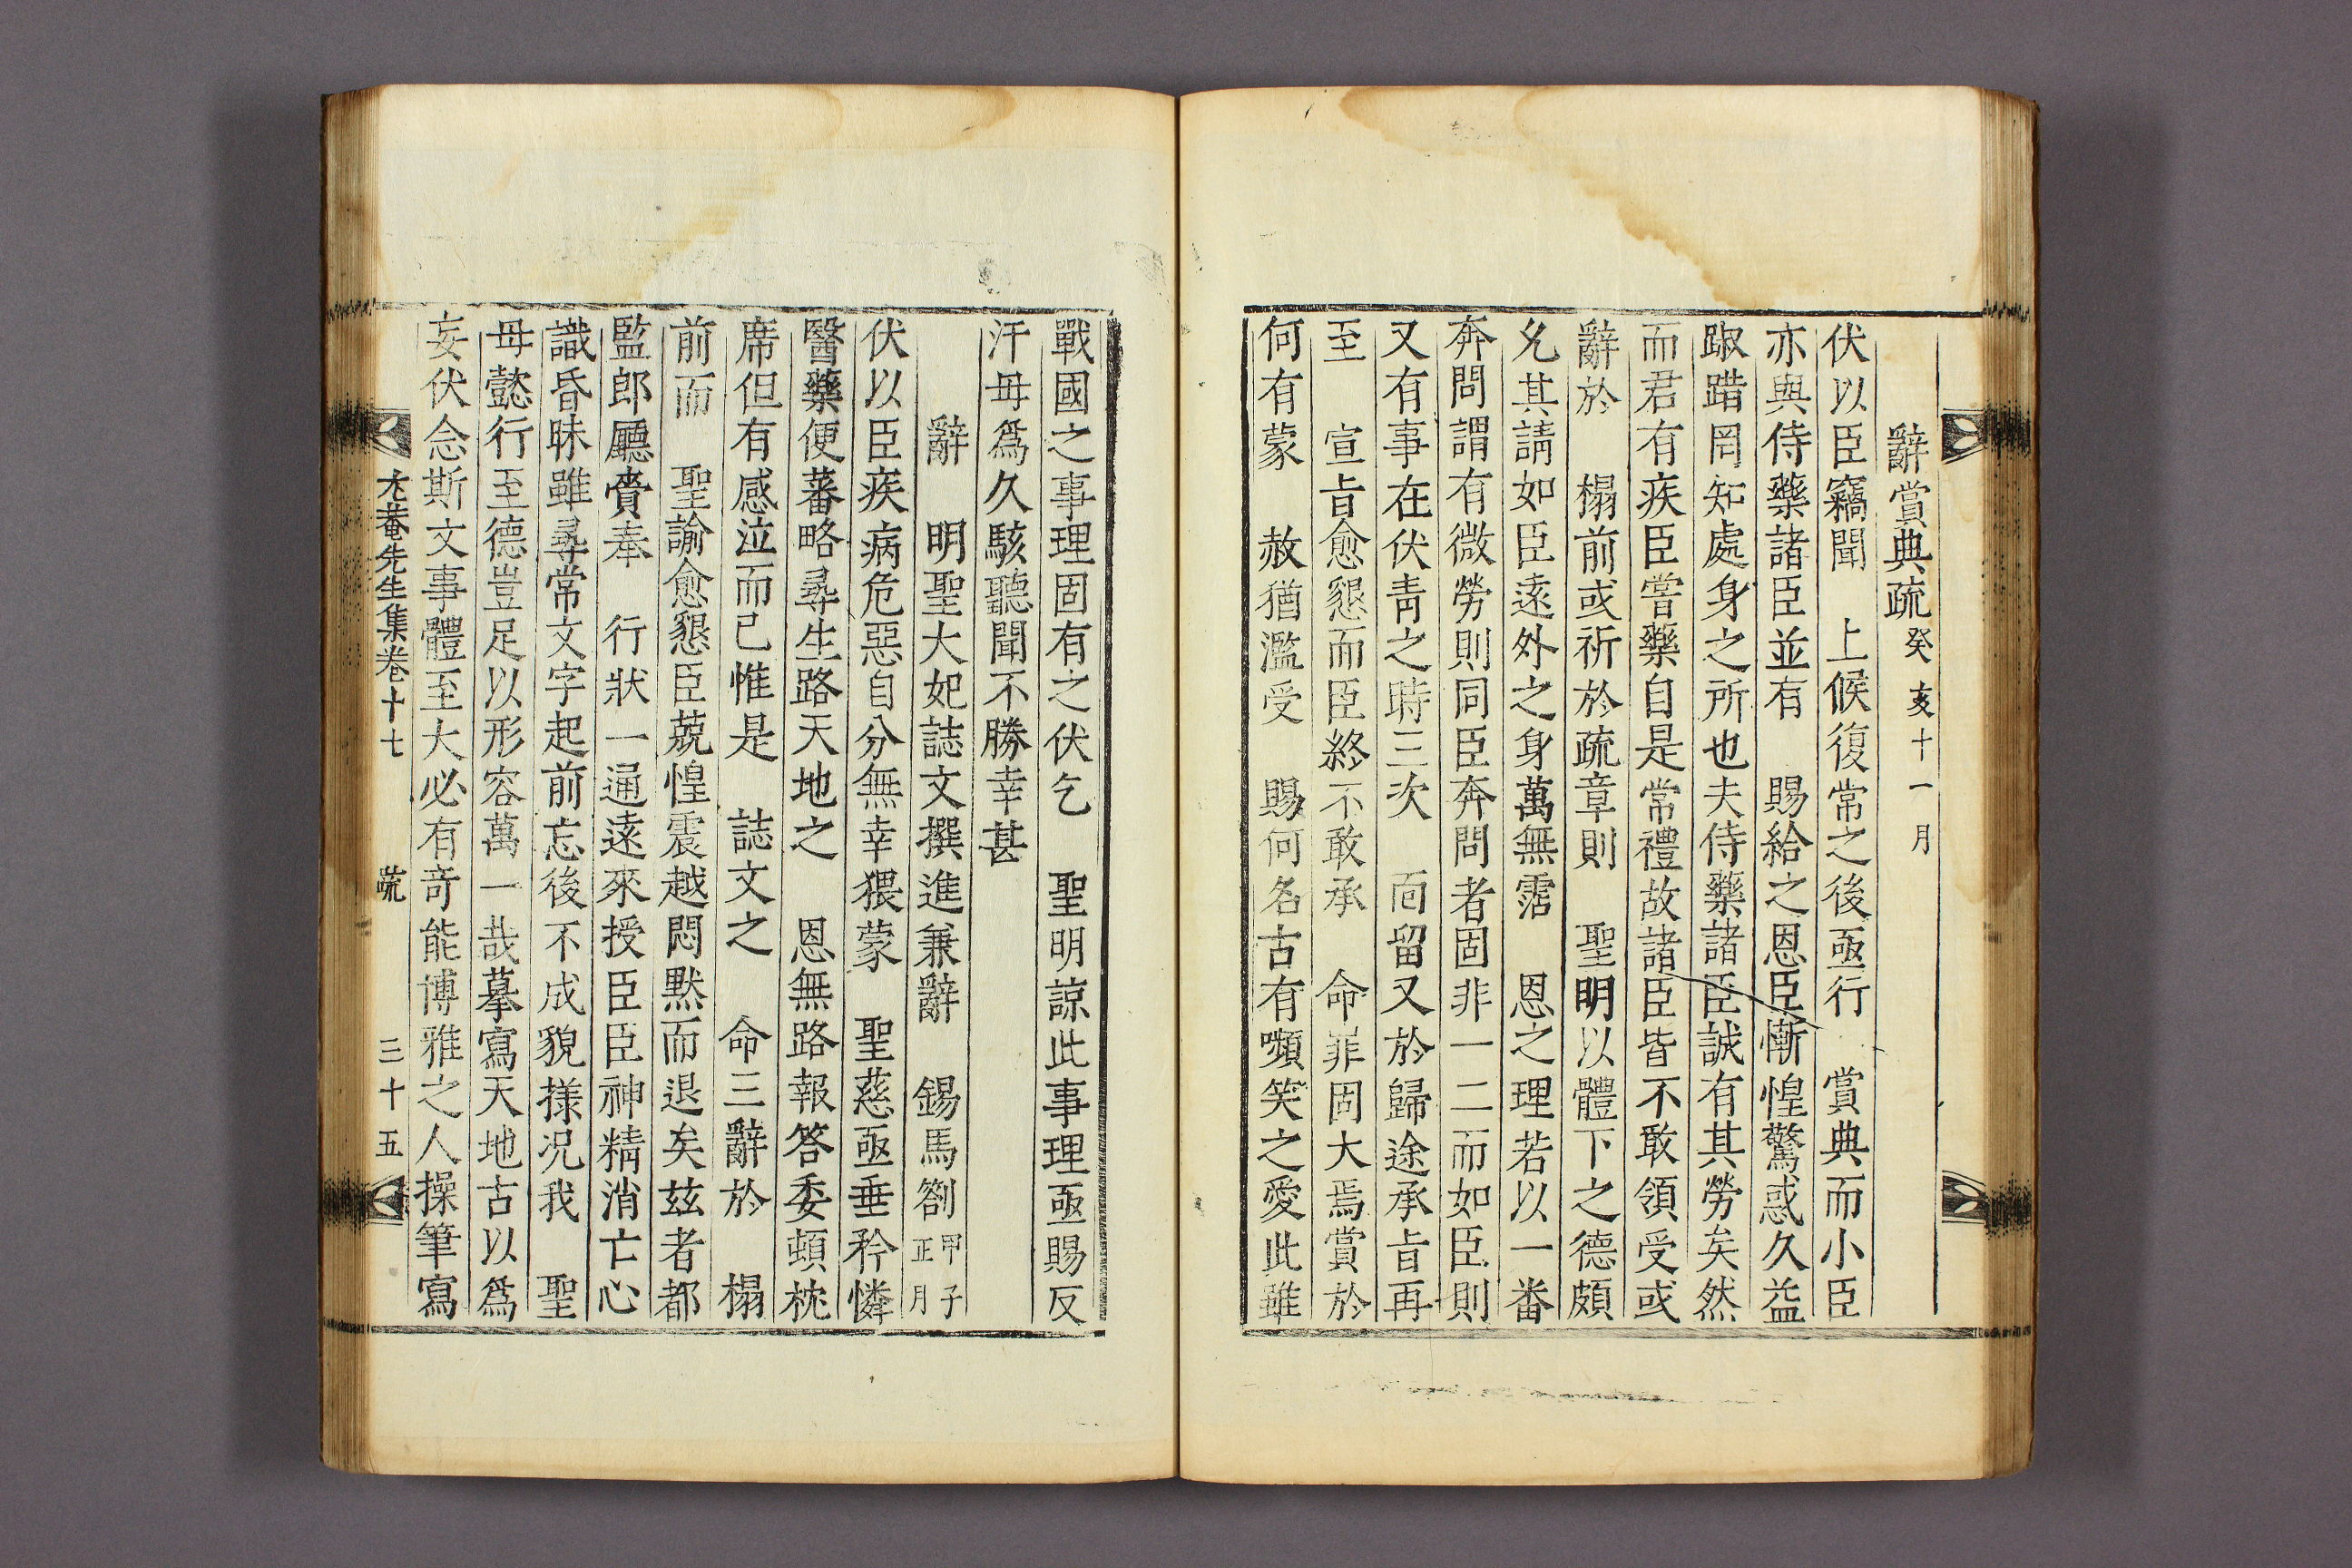 辭賞典疏 癸亥十一月
伏以臣竊聞 上候復常之後亟行 賞典而小臣
亦與侍藥諸臣並有 賜給之恩臣慚惶驚惑久益
踧踖罔知處身之所也夫侍藥諸臣誠有其勞矣然
而君有疾臣嘗藥自是常禮故諸臣皆不敢領受或
辭於 榻前或祈於疏章則 聖明以體下之德頗
允其請如臣遠外之身萬無霑 恩之理若以一番
奔問謂有微勞則同臣奔問者固非一二而如臣則
又有事在伏靑之時三次 面留又於歸途承旨再
至 宣旨愈懇而臣終不敢承 命罪固大焉賞於
何有蒙 赦猶濫受 賜何名古有嚬笑之愛此雖
戰國之事理固有之伏乞 聖明諒此事理亟賜反
汗毋爲久駭聽聞不勝幸甚
辭 明聖大妃誌文撰進兼辭 錫馬劄 甲子正月
伏以臣疾病危惡自分無幸猥蒙 聖慈亟垂矜憐
醫藥便蕃略尋生路天地之 恩無路報答委頓枕
席但有感泣而已惟是 誌文之 命三辭於 榻
前而 聖諭愈懇臣兢惶震越悶默而退矣玆者都
監郎廳賫奉 行狀一通遠來授臣臣神精消亡心
識昏昧雖尋常文字起前忘後不成貌樣况我 聖
母懿行至德豈足以形容萬一哉摹寫天地古以爲
妄伏念斯文事體至大必有奇能博雅之人操筆寫
尤菴先生集卷十七 疏 三十五